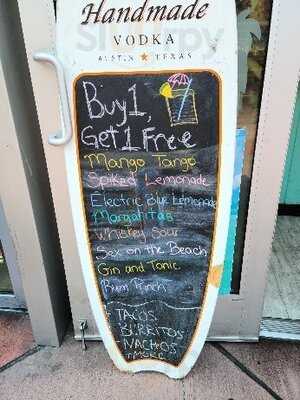 Handmade
VODKA
AUSTIN ★ TEXAS
Buy 1,
Get 1 Free
Mango Tango
Spiked Lemonade
Electric Blue Lemonade
Margaritas
Whiskey Sour
Sex on the Beach
Gin and Tonic
Rum Punch
TACOS
BURRITOS
NACHOS
+MORE